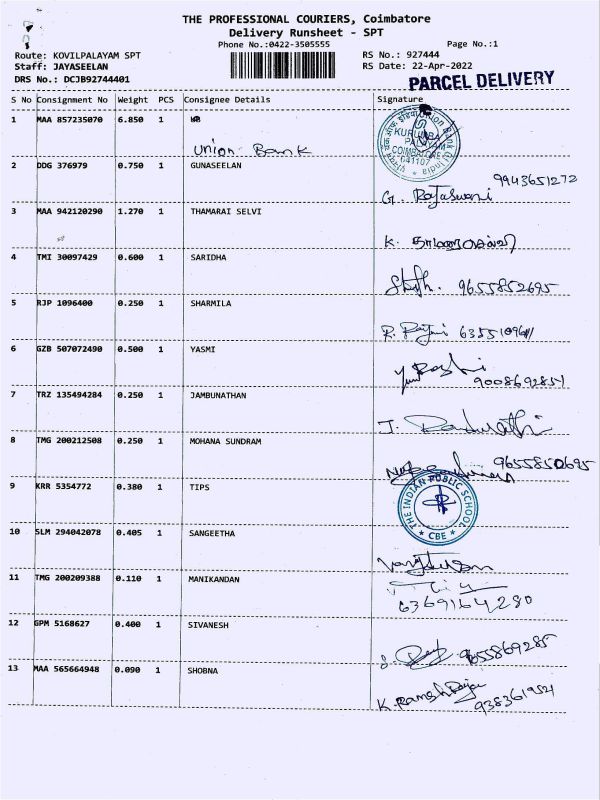 THE PROFESSIONAL COURIERS, Coimbatore
Delivery Runsheet - SPT
Phone No.:0422-3505555
Page No.:1
Route: KOVILPALAYAM SPT
RS No.: 927444
Staff: JAYASEELAN
RS Date: 22-Apr-2022
DRS No.: DCJB92744401
PARCEL DELIVERY
S No Consignment No Weight PCS Consignee Details Signature
1 MAA 857235070 6.850 1
Union Bank
KURUMBA PALAYAM COIMBATORE 641107
2 DDG 376979 0.750 1 GUNASEELAN
9943651272
G. Rajaswani
3 MAA 942120290 1.270 1 THAMARAI SELVI
K.
4 TMI 30097429 0.600 1 SARIDHA
9655852695
5 RJP 1096400 0.250 1 SHARMILA
R.
6 GZB 507072490 0.500 1 YASMI
9008692851
7 TRZ 135494284 0.250 1 JAMBUNATHAN
J.
8 TMG 200212508 0.250 1 MOHANA SUNDRAM
9655850695
9 KRR 5354772 0.380 1 TIPS
THE INDIAN PUBLIC SCHOOL
CBE
10 SLM 294042078 0.405 1 SANGEETHA
11 TMG 200209388 0.110 1 MANIKANDAN
6369164280
12 GPM 5168627 0.400 1 SIVANESH
9655869285
13 MAA 565664948 0.090 1 SHOBNA
K. Ramesh
938361954